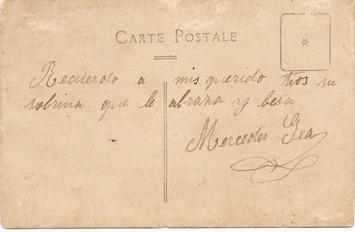 CARTE POSTALE
Recuerdo a mis querido tios su
sobrina que le abraza y besa
Mercedes Gea